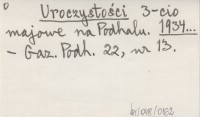 Uroczystości 3-cio
majowe na Podhalu. 1934...
– Gaz. Podh. 22, nr 13.